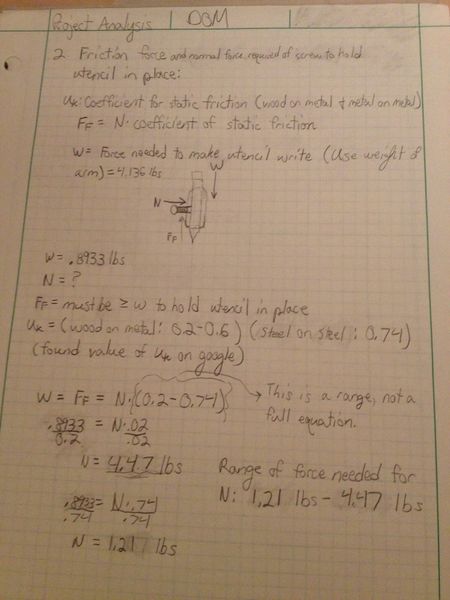 Project Analysis | DBM
2. Friction force and normal force required of screw to hold
utencil in place:
Uk: Coefficient for static friction (wood on metal & metal on metal)
FF = N · coefficient of static friction
W = Force needed to make utencil write (Use weight of
arm) = 4.136 lbs
W
N →
FF
W = .8933 lbs
N = ?
FF = must be ≥ W to hold utencil in place
Uk = (wood on metal: 0.2-0.6) (steel on steel: 0.74)
(found value of Uk on google)
W = FF = N·(0.2-0.74) → This is a range, not a
full equation.
.8933 = N·.02
0.2 .02
N = 4.47 lbs
.8933 = N·.74
.74 .74
N = 1.217 lbs
Range of force needed for
N: 1.21 lbs - 4.47 lbs